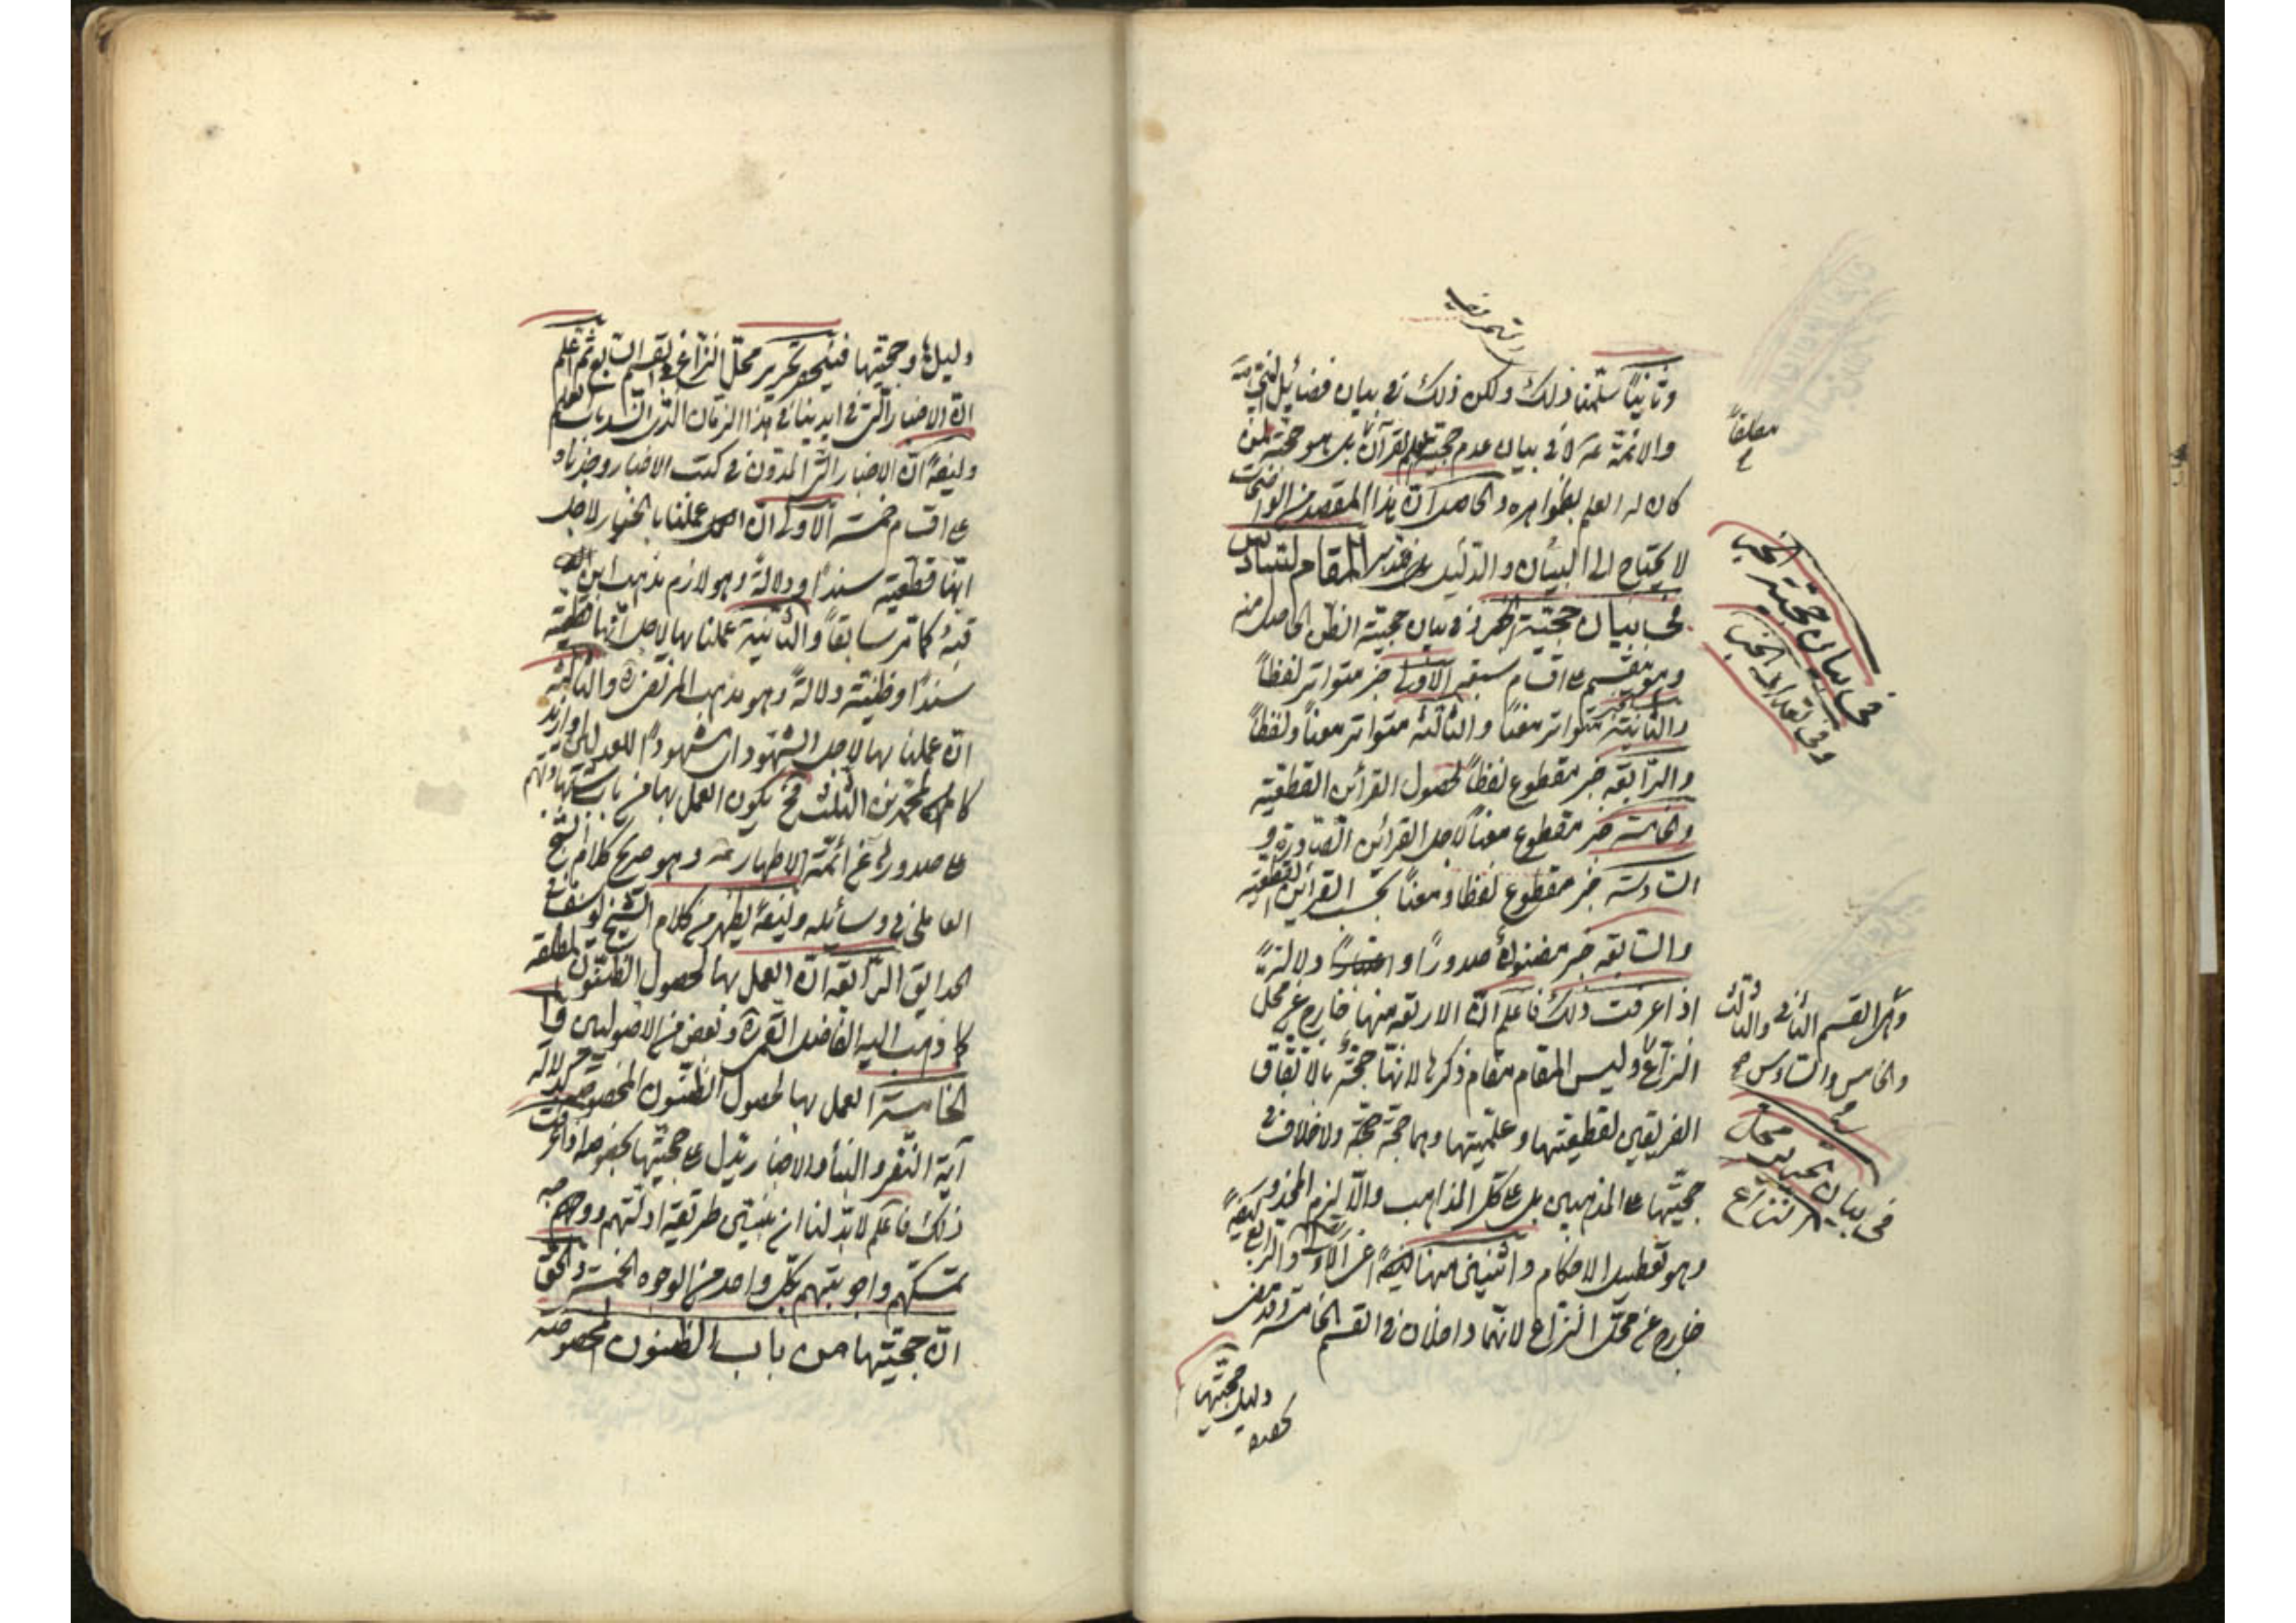 وثانياً سلّمنا ذلك ولكن ذلك في بيان فضائل النبي
والائمّة لا في بيان عدم حجّيّة القرآن بل هو حجّة لمن
كان له العلم بظواهره والحاصل انّ هذا المقصد من الواضحات
لا يحتاج الى البيان والدّليل المقام السادس
في بيان حجّيّة الخبر في بيان حجّيّة الظن الحاصل منه
وهو ينقسم على اقسام سبعة الاولى خبر متواتر لفظاً
والثانية خبر متواتر معناً والثالثة متواتر معناً ولفظاً
والرّابعة خبر مقطوع لفظاً لحصول القرائن القطعيّة
والخامسة خبر مقطوع معناً لاجل القرائن الصّادرة و
السّادسة خبر مقطوع لفظا ومعناً بحسب القرائن القطعيّة
والسّابعة خبر مظنونة صدوراً و ولا دلالةً
اذا عرفت ذلك فاعلم انّ الاربعة منها خارج عن محلّ
النزاع وليس المقام مقام ذكرها لانّها حجّة بالاتّفاق
الفريقين لقطعيّتها وعلميّتها وهما حجّة ولا خلاف في
حجّيّتها على المذهبين بل على كلّ المذاهب والّا يلزم المحذور
وهو تعطيل الاحكام واثنين منها ايضاً اعني الاولى والرابع
خارج عن محلّ النزاع لانّهما داخلان في القسم الخامسة
دليل حجّيّتها
مطلقاً
في بيان حجّيّة الخبر
وفي تعداد الخبر
وهي القسم الثاني والثالث
والخامس والسّادس
في بيان تحرير محل
النزاع
دليلها وحجّيّتها فينحصر تحرير محلّ النزاع في القسم السّابع ثم اعلم
انّ الاخبار الّتي في ايدينا في هذا الزمان الّذي انسد باب العلم
وايضاً انّ الاخبار الّتي المدوّن في كتب الاخبار وجدناه
على اقسام خمسة الاولى انّ عملنا بالخبر لاجل
انّها قطعيّة سنداً ودلالةً وهو لازم مذهب ابن
قبة كما مرّ سابقاً والثّانية عملنا بها لاجل انّها قطعيّة
سنداً وظنيّة دلالةً وهو مذهب المرتضى ره والثالثة
انّ عملنا بها لاجل الشهود ان مشهودهم للعدلين او ازيد
كالمحمّدين الثلث فح يكون العمل بها من باب شهادتهم
على صدوره عن ائمّة الاطهار وهو صريح كلام الشيخ
العاملي في وسائله وايضاً يظهر من كلام الشيخ يوسف في
الحدايق الرّابعة انّ العمل بها لحصول الظنّون المطلقة
كما ذهب اليه الفاضل القمي ره وبعض من الاصوليين
الخامسة العمل بها لحصول الظنّون المخصوصة لدلالة
آية النّفر والنبأ والاخبار يدلّ على حجّيّتها بخصوصها اذا عرفت
ذلك فاعلم لابدّ لنا ان نبيّن طريقة ادلّتهم ووجه
تمسّكهم واجوبتهم بكلّ واحد من الوجوه الخمسة والحقّ
انّ حجّيّتها من باب الظنون المخصوصة